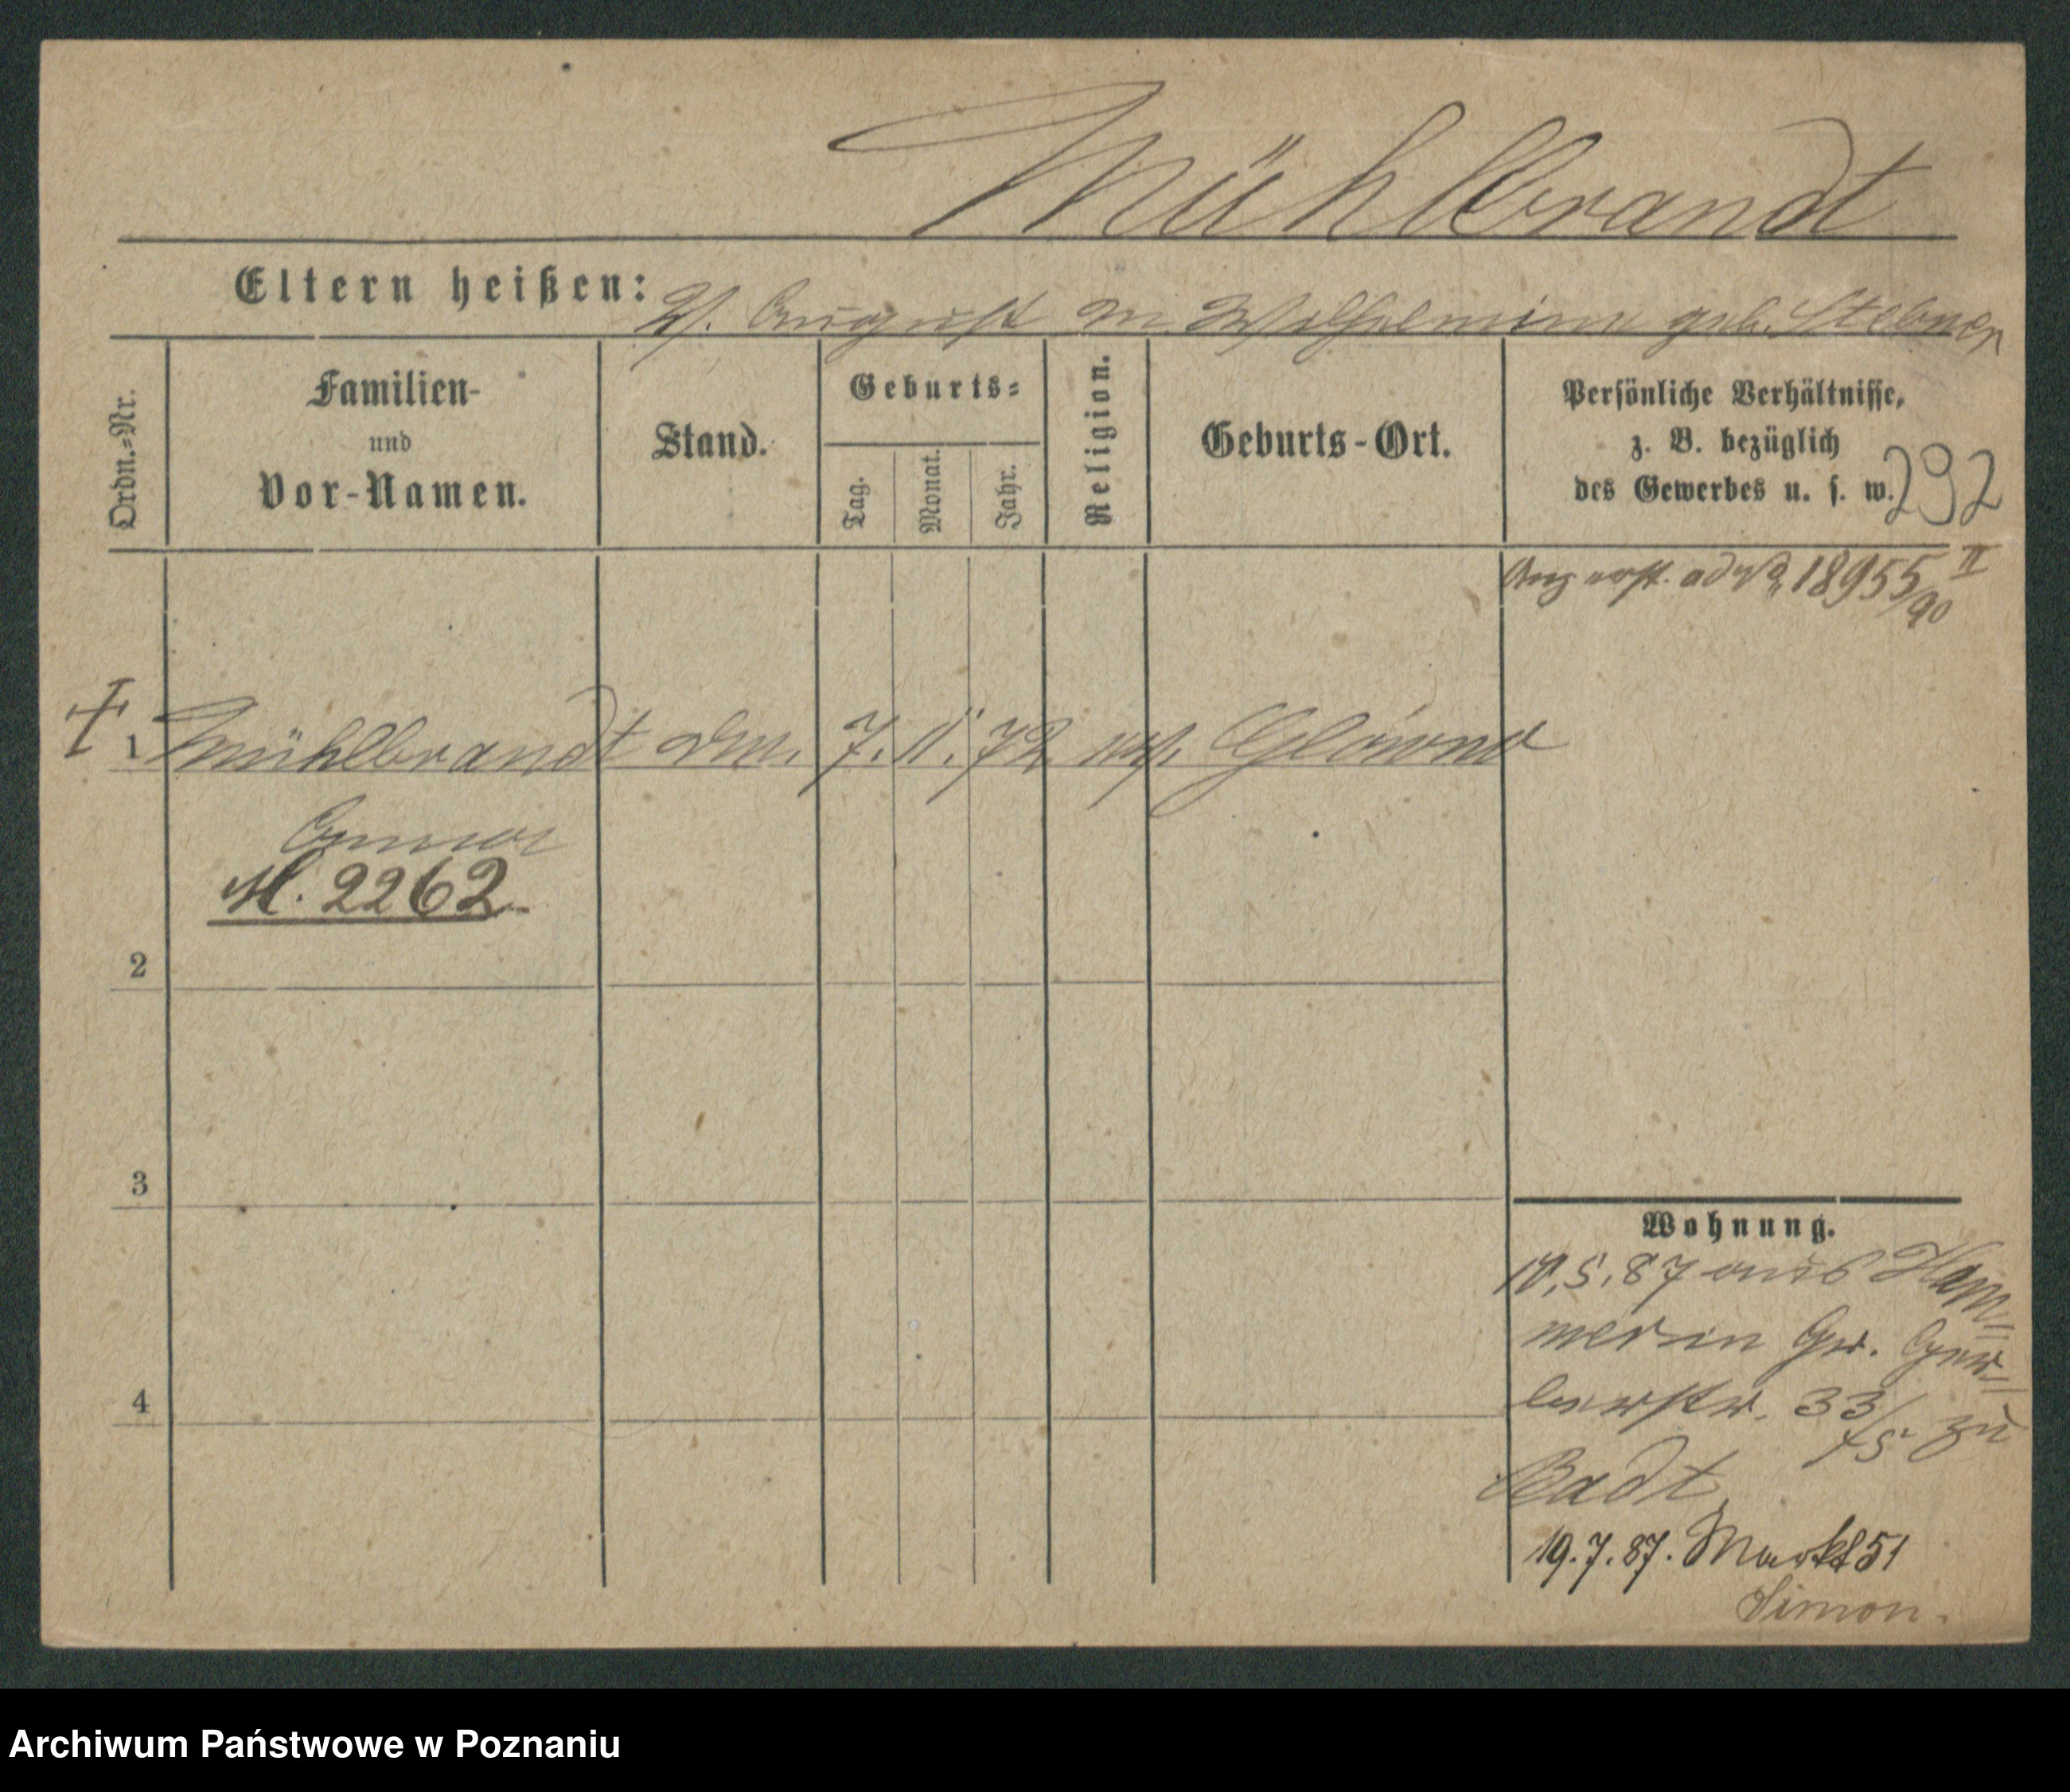 Mühlbrandt
Eltern heißen: V. August M. Wilhelmine geb. Stebner
Ordn.-Nr.
Familien-
und
Vor-Namen.
Stand.
Geburts-
Tag.
Monat.
Jahr.
Religion.
Geburts-Ort.
Persönliche Verhältnisse,
z. B. bezüglich
des Gewerbes u. s. w.
292
18955/90 II
1 Mühlbrandt 7. 11. 72 Glowno
Anna
M. 2262
2
3
4
Wohnung.
10.5.87 aus Ham-
mer in Gr. Ger-
berstr. 33/5 zu
Badt
19.7.87. Markt 51
Simon.
Archiwum Państwowe w Poznaniu